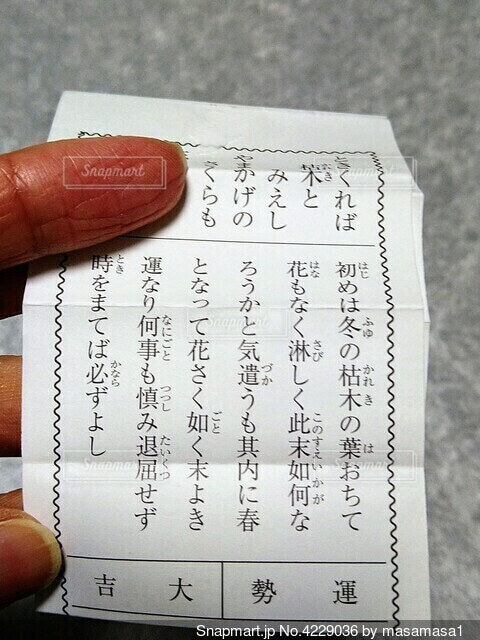 くれば
木と
みえし
かげの
くらも
初めは冬の枯木の葉おちて
花もなく淋しく此末如何な
ろうかと気遣うも其内に春
となって花さく如く末よき
運なり何事も慎み退屈せず
時をまてば必ずよし
運勢
大吉
Snapmart
Snapmart.jp No.4229036 by masamasa1